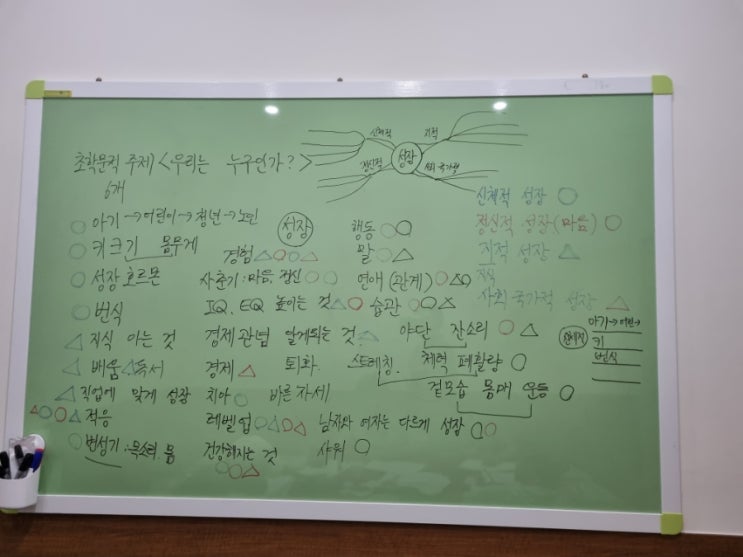 초학문적 주제 <우리는 누구인가?>
6개
신체적
지적
성장
정신적
사회 국가적
신체적 성장
정신적 성장(마음)
지적 성장
지식
사회 국가적 성장
아기→어린이→청년→노인
키 크기 몸무게
성장 호르몬
번식
지식 아는 것
배움 독서
직업에 맞게 성장
적응
변성기:목소리. 몸
성장
경험
사춘기:마음, 정신
IQ, EQ 높이는 것
경제 관념 알게되는 것
경제 퇴화
치아 바른 자세
레벨 업
건강해지는 것
행동
말
연애 (관계)
습관
야단 잔소리
스트레칭. 체력 폐활량
겉모습 몸매 운동
남자와 여자는 다르게 성장
샤워
신체적
아기→어린→
키
번식